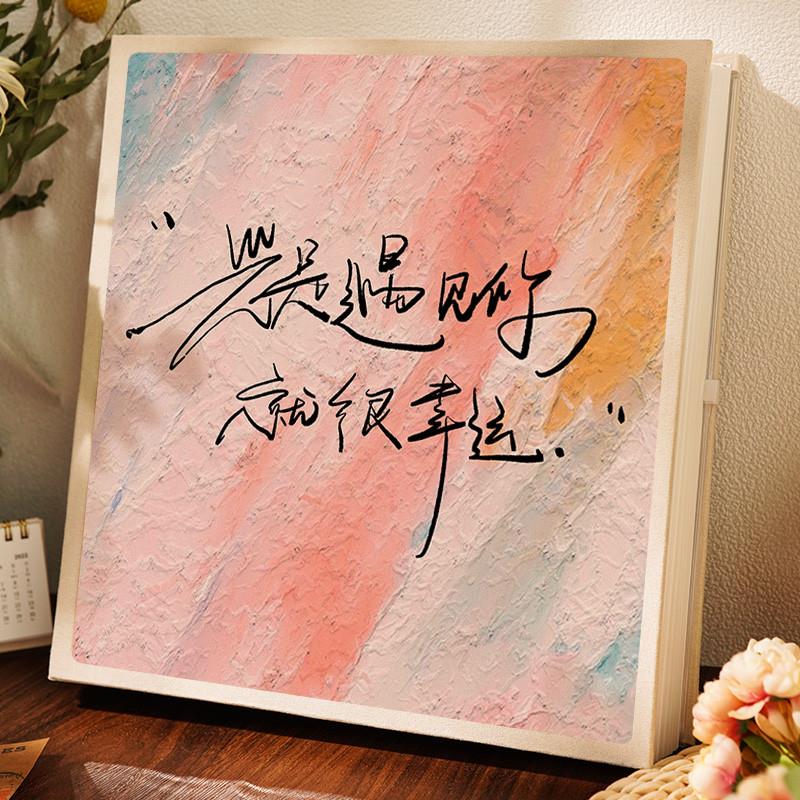 “光是遇见你
就很幸运.”
2022
ES